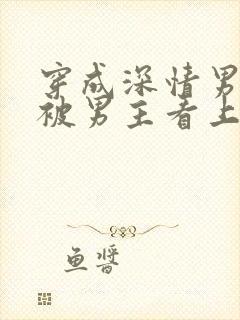 穿成深情男
被男主看上
鱼酱